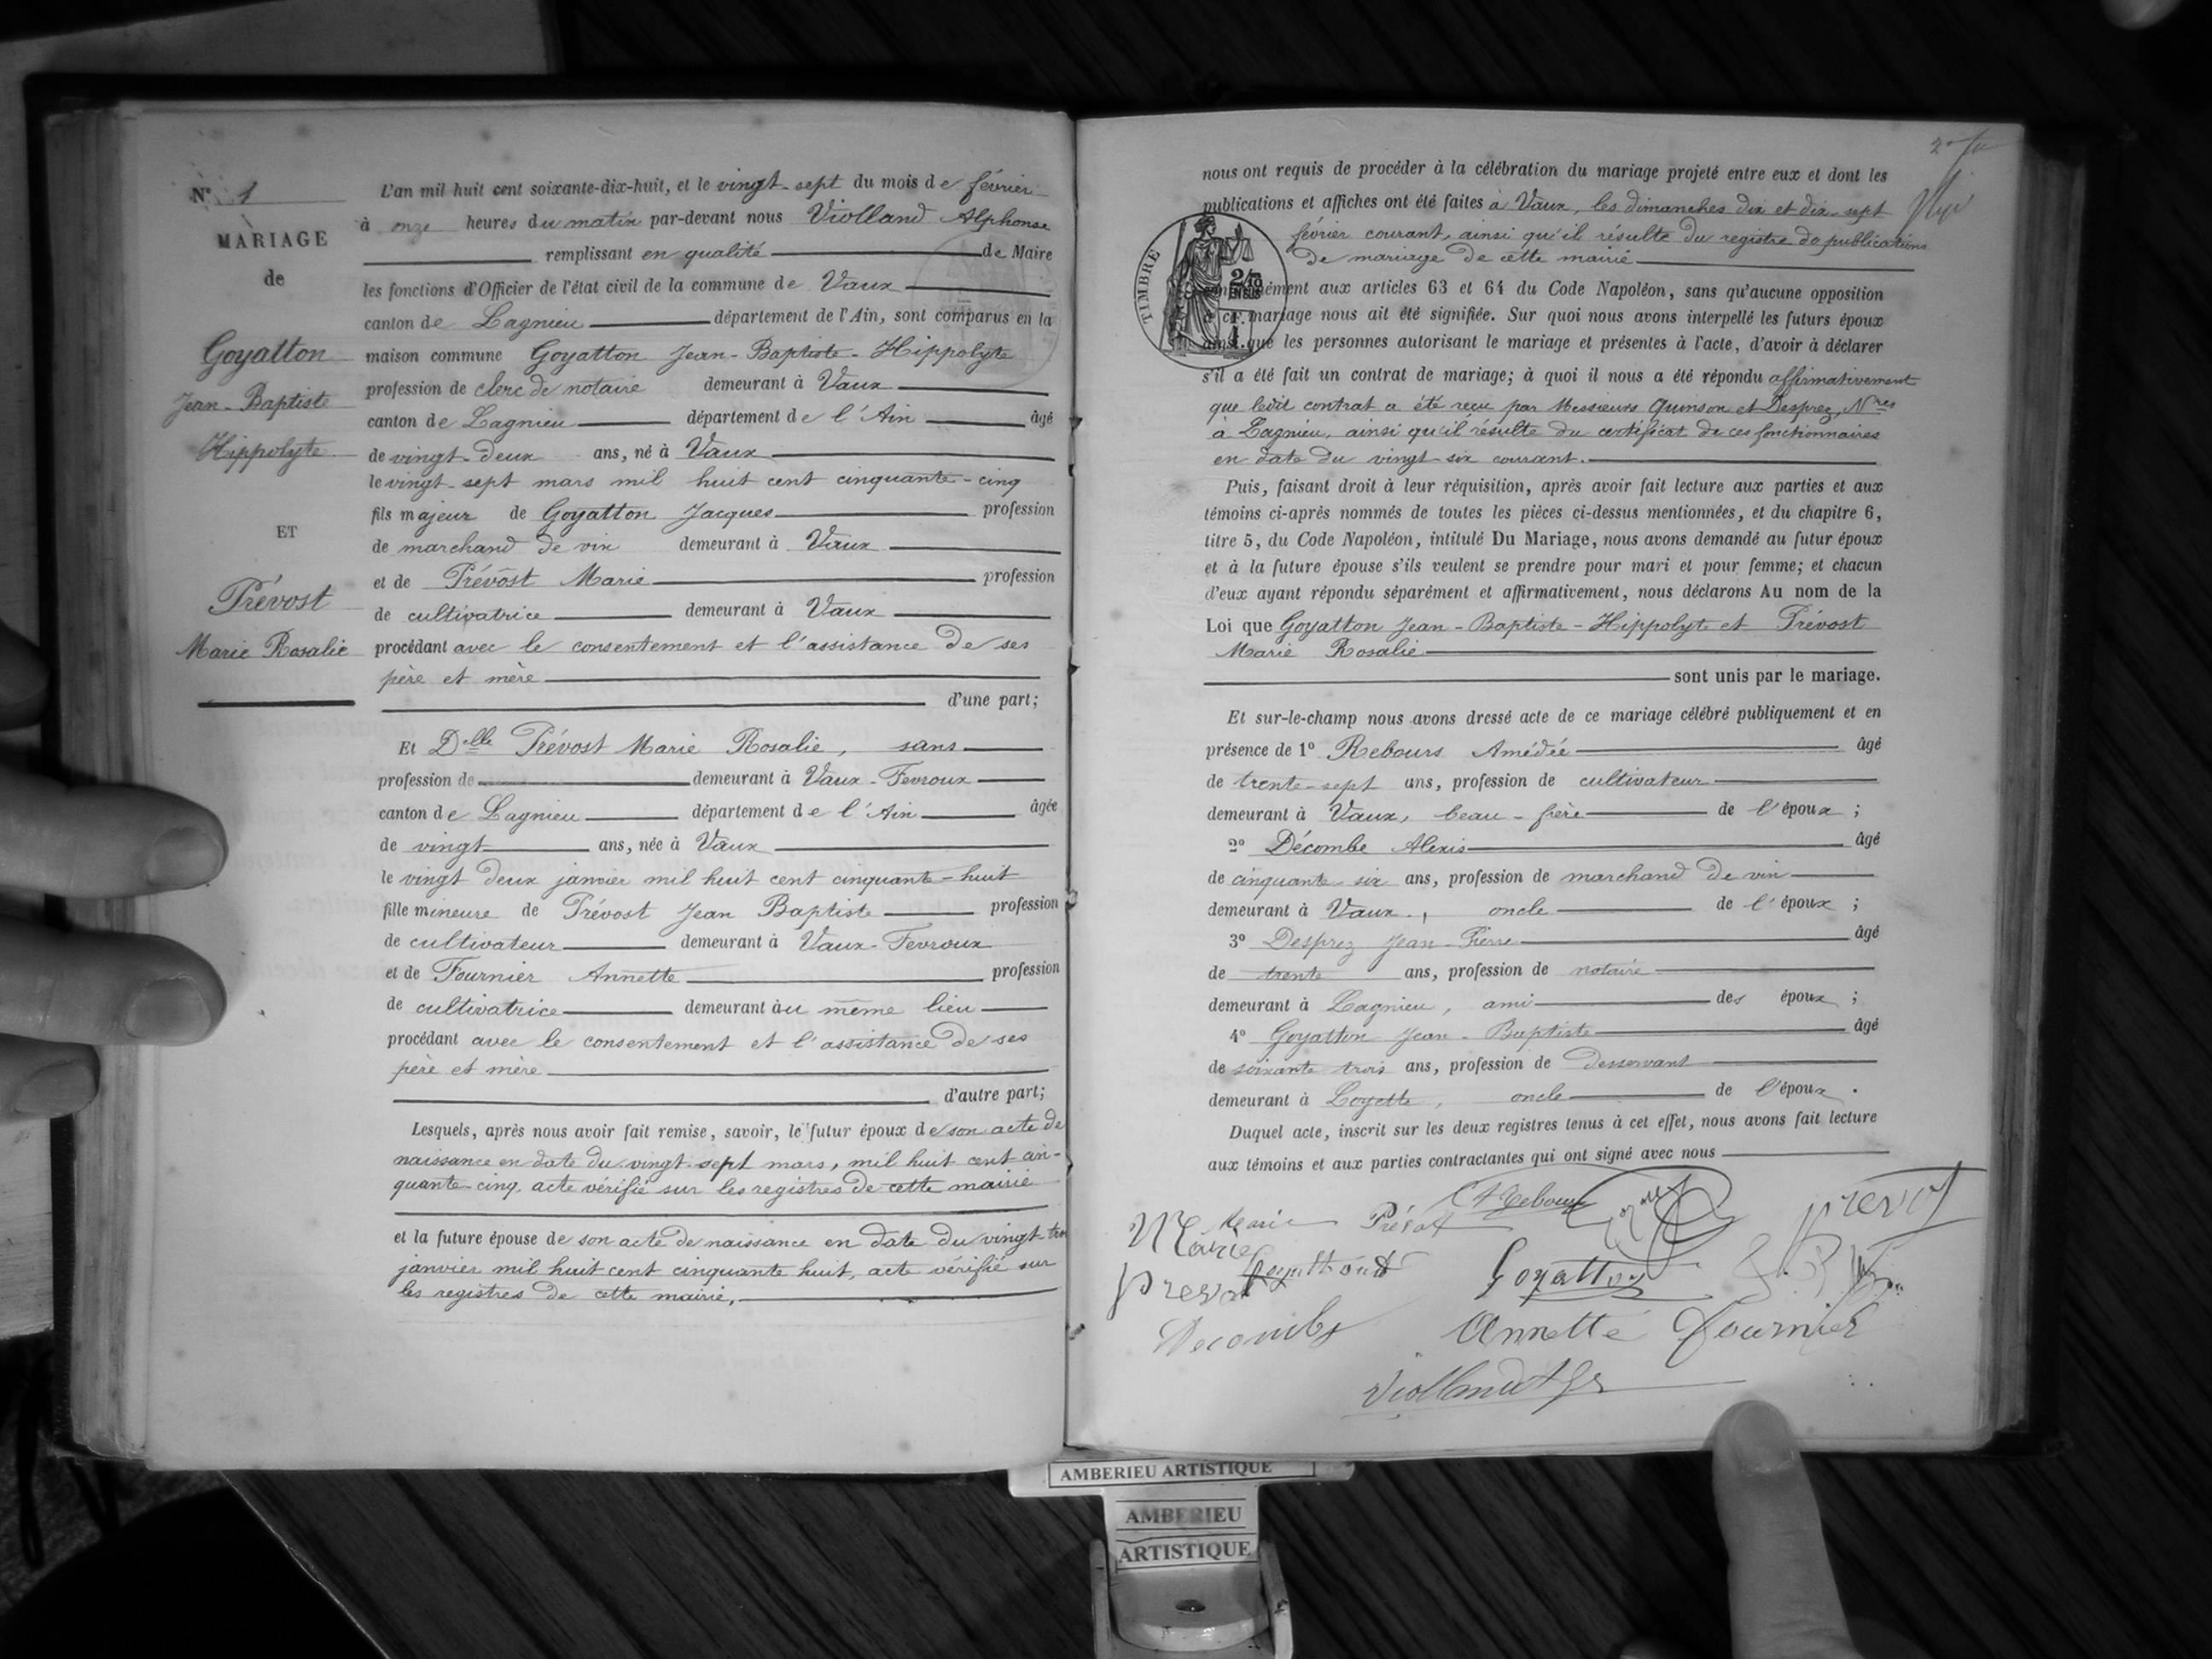 N° 1
MARIAGE
de
Goyatton
Jean-Baptiste
Hippolyte
ET
Prévost
Marie Rosalie
L'an mil huit cent soixante-dix-huit, et le vingt-sept du mois de février
à onze heures du matin par-devant nous Violland Alphonse
remplissant en qualité de Maire
les fonctions d'Officier de l'état civil de la commune de Vaux
canton de Lagnieu département de l'Ain, sont comparus en la
maison commune Goyatton Jean-Baptiste-Hippolyte
profession de clerc de notaire demeurant à Vaux
canton de Lagnieu département de l'Ain âgé
de vingt-deux ans, né à Vaux
le vingt-sept mars mil huit cent cinquante-cinq
fils majeur de Goyatton Jacques profession
de marchand de vin demeurant à Vaux
et de Prévost Marie profession
de cultivatrice demeurant à Vaux
procédant avec le consentement et l'assistance de ses
père et mère
d'une part;
Et Delle Prévost Marie Rosalie, sans
profession de demeurant à Vaux-Fevroux
canton de Lagnieu département de l'Ain âgée
de vingt ans, née à Vaux
le vingt deux janvier mil huit cent cinquante-huit
fille mineure de Prévost Jean Baptiste profession
de cultivateur demeurant à Vaux-Fevroux
et de Fournier Annette profession
de cultivatrice demeurant au même lieu
procédant avec le consentement et l'assistance de ses
père et mère
d'autre part;
Lesquels, après nous avoir fait remise, savoir, le futur époux de son acte de
naissance en date du vingt-sept mars, mil huit cent cin-
quante-cinq, acte vérifié sur les registres de cette mairie
et la future épouse de son acte de naissance en date du vingt-trois
janvier mil huit cent cinquante huit, acte vérifié sur
les registres de cette mairie.
nous ont requis de procéder à la célébration du mariage projeté entre eux et dont les
publications et affiches ont été faites à Vaux, les dimanches dix et dix-sept
février courant, ainsi qu'il résulte du registre de publications
de mariage de cette mairie
TIMBRE
conformément aux articles 63 et 64 du Code Napoléon, sans qu'aucune opposition
à ce mariage nous ait été signifiée. Sur quoi nous avons interpellé les futurs époux
ainsi que les personnes autorisant le mariage et présentes à l'acte, d'avoir à déclarer
s'il a été fait un contrat de mariage; à quoi il nous a été répondu affirmativement
que ledit contrat a été reçu par Messieurs Quinson et Desprez, Nres
à Lagnieu, ainsi qu'il résulte du certificat de ces fonctionnaires
en date du vingt-six courant.
Puis, faisant droit à leur réquisition, après avoir fait lecture aux parties et aux
témoins ci-après nommés de toutes les pièces ci-dessus mentionnées, et du chapitre 6,
titre 5, du Code Napoléon, intitulé Du Mariage, nous avons demandé au futur époux
et à la future épouse s'ils veulent se prendre pour mari et pour femme; et chacun
d'eux ayant répondu séparément et affirmativement, nous déclarons Au nom de la
Loi que Goyatton Jean-Baptiste-Hippolyt et Prévost
Marie Rosalie
sont unis par le mariage.
Et sur-le-champ nous avons dressé acte de ce mariage célébré publiquement et en
présence de 1° Rebours Amédée âgé
de trente-sept ans, profession de cultivateur
demeurant à Vaux, beau-frère de l'époux ;
2° Décombe Alexis âgé
de cinquante-six ans, profession de marchand de vin
demeurant à Vaux, oncle de l'époux ;
3° Desprez Jean-Pierre âgé
de trente ans, profession de notaire
demeurant à Lagnieu, ami des époux ;
4° Goyatton Jean-Baptiste âgé
de soixante trois ans, profession de Desservant
demeurant à Loyette, oncle de l'époux.
Duquel acte, inscrit sur les deux registres tenus à cet effet, nous avons fait lecture
aux témoins et aux parties contractantes qui ont signé avec nous
Marie Prévost
Marie
Goyatton
Decombe
Annette Fournier
AMBERIEU ARTISTIQUE
AMBERIEU
ARTISTIQUE